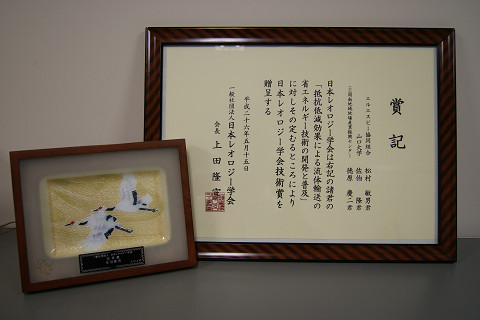 賞記
エルエスピー協同組合 松村 敏男君
山口大学 佐伯 隆君
徳原 慶二君
日本レオロジー学会は右記の諸君の
「抵抗低減効果による流体輸送の
省エネルギー技術の開発と普及」
に対しその定むるところにより
日本レオロジー学会技術賞を
贈呈する
平成二十六年五月十五日
一般社団法人 日本レオロジー学会
会長 上田隆宣